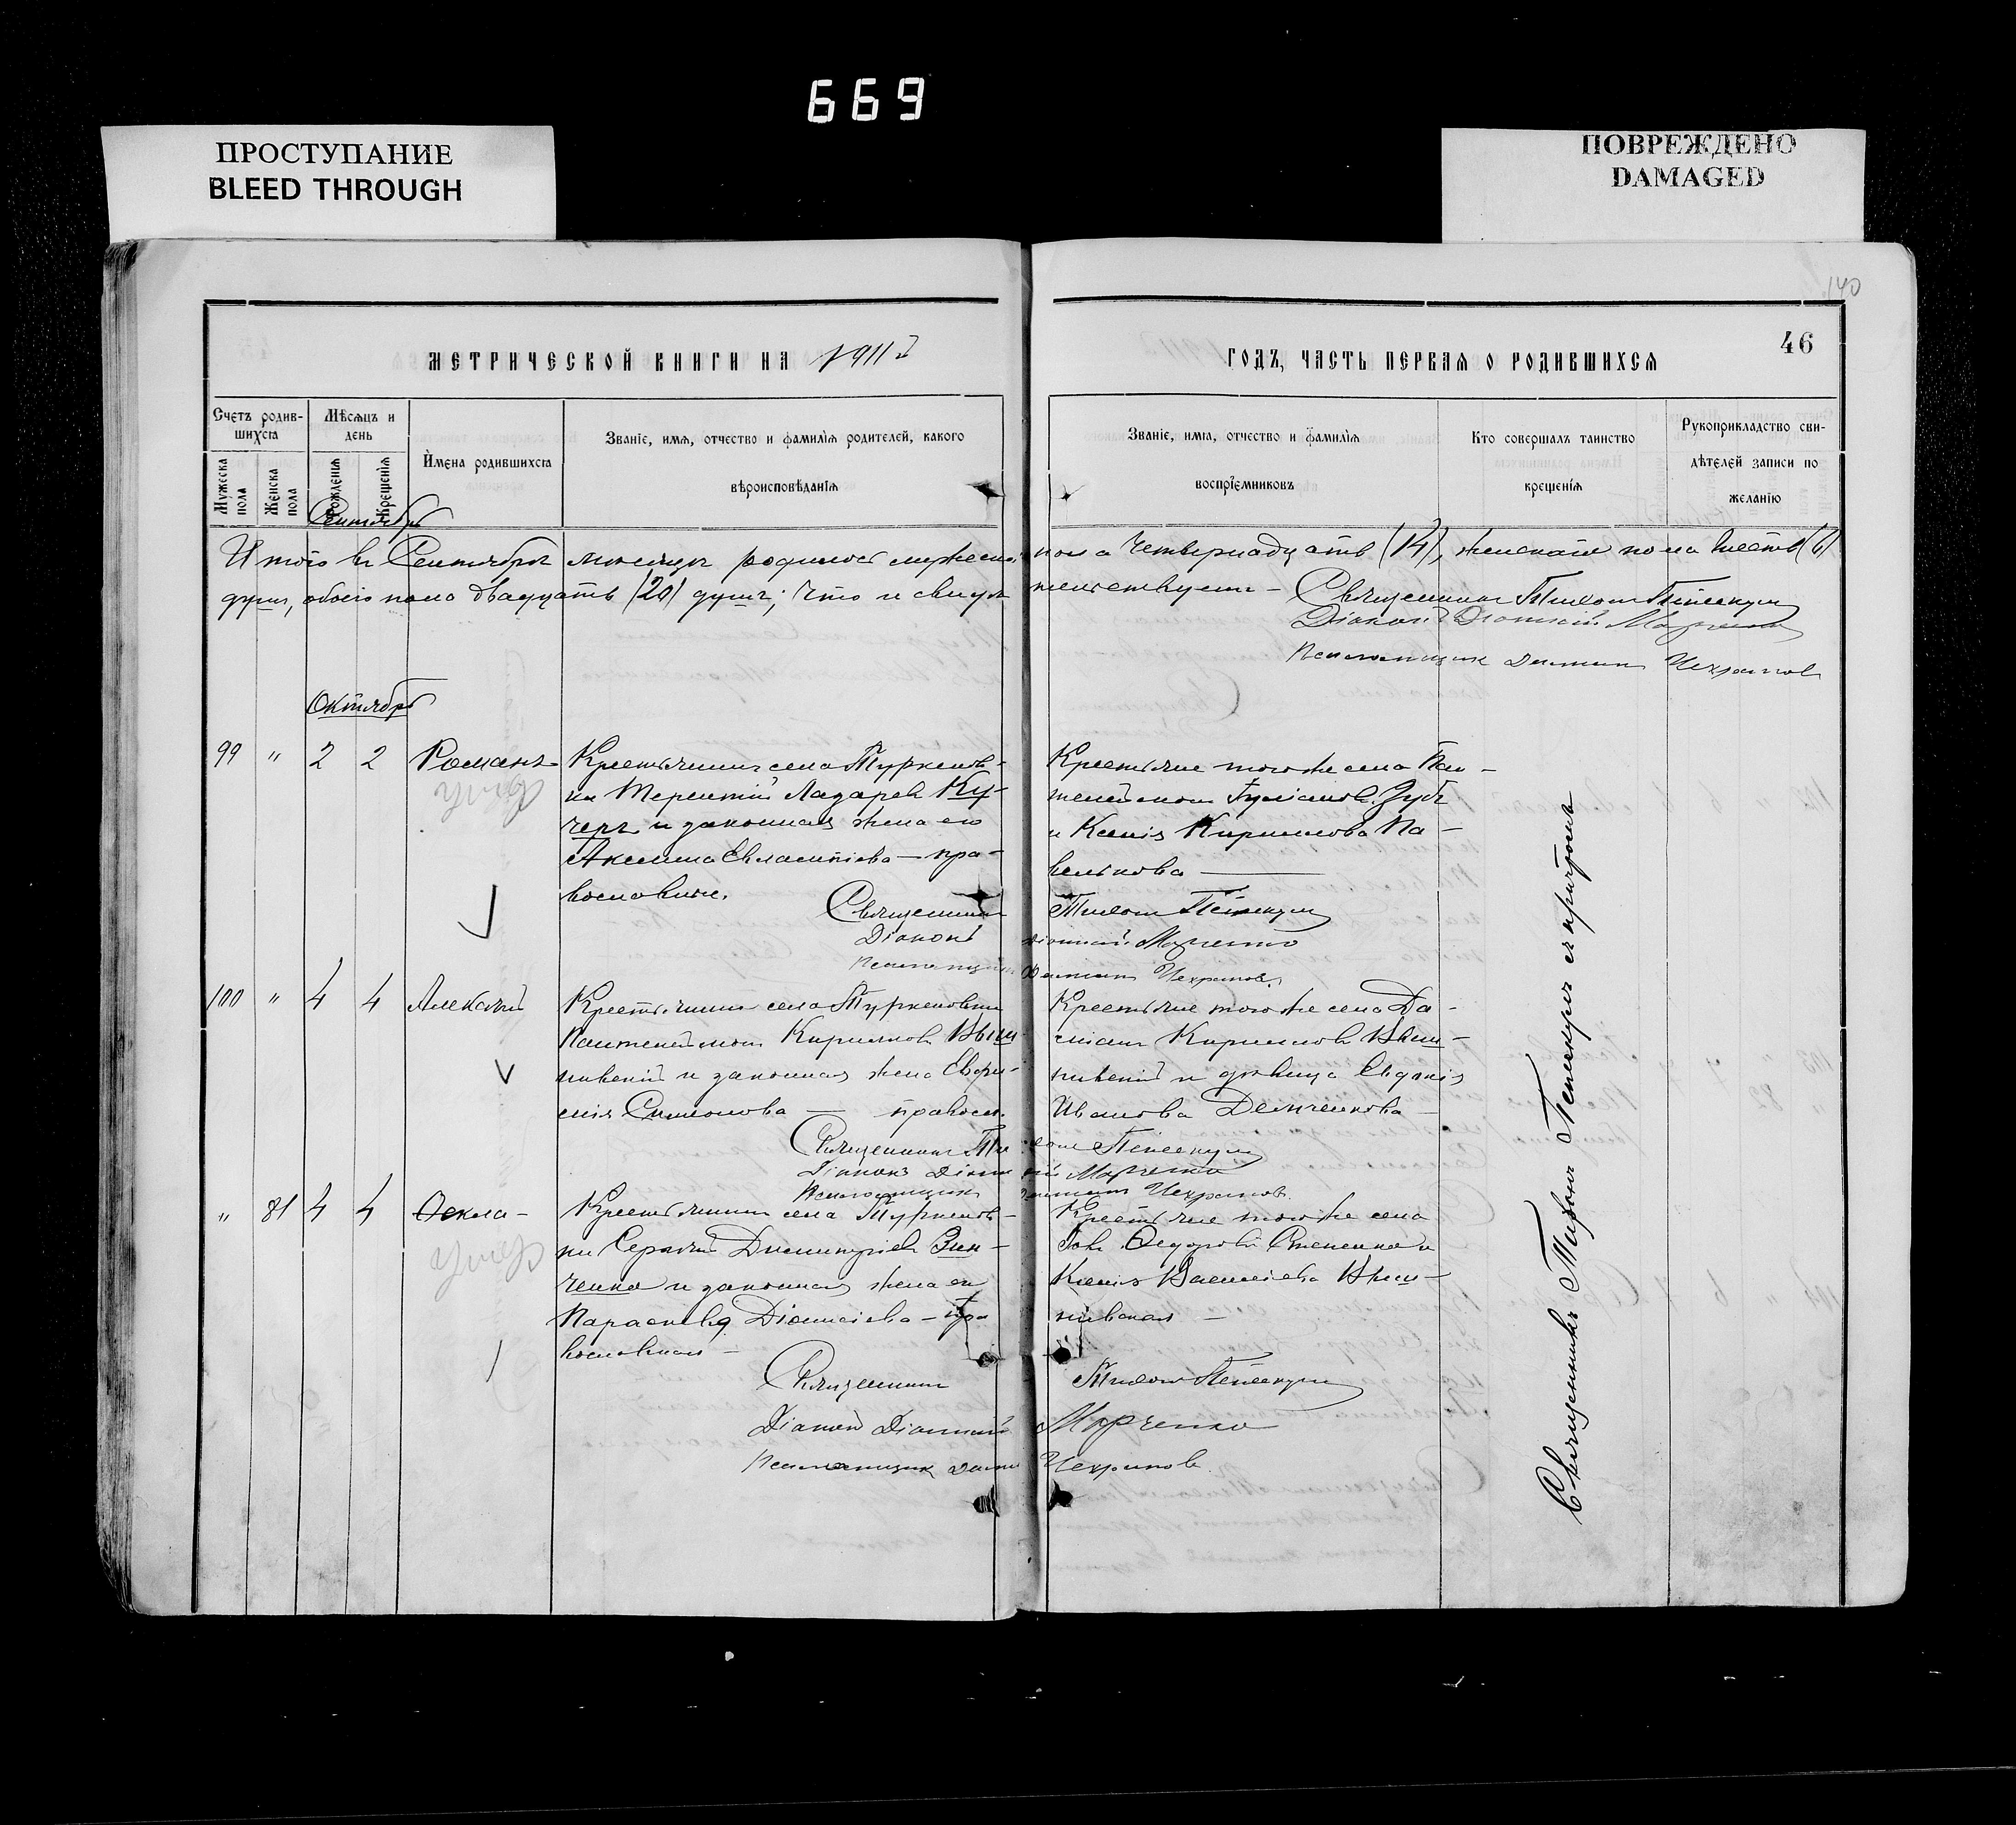 669
ПРОСТУПАНИЕ
BLEED THROUGH
ПОВРЕЖДЕНО
DAMAGED
140
46
МЕТРИЧЕСКОЙ КНИГИ НА 1911й
ГОДЪ, ЧАСТЬ ПЕРВАЯ О РОДИВШИХСЯ
Счетъ родив-
шихся
Мѣсяцъ и
день
Мужеска
пола
Женска
пола
Рожденія
Крещенія
Имена родившихся
Званіе, имя, отчество и фамилія родителей, какого
вѣроисповѣданія
Званіе, имя, отчество и фамилія
воспріемниковъ
Кто совершалъ таинство
крещенія
Рукоприкладство сви-
дѣтелей записи по
желанію
Сентябрь
Итого въ Сентябрѣ месяцѣ родилось мужескаго пола четырнадцать (14), женскаго пола шесть (6)
душъ, обоего пола двадцать (20) душъ; что и свидѣтельствуемъ - Священникъ Тихонъ
Діаконъ Діонисій Марченко
Псаломщикъ
Октябрь
99 " 2 2 Романъ
умер
Крестьянинъ села Туркенов-
ки Терентій Лазаревъ Ку-
черъ и законная жена его
Акилина - пра-
вославные.
Крестьяне того же села Пан-
телеймонъ Зубъ
и Ксенія Кириллова Па-
велькова
Священникъ Тихонъ
Діаконъ Діонисій Марченко
Псаломщикъ
100 " 4 4 Алексѣй
Крестьянинъ села Туркеновки
Пантелеймонъ Кирилловъ Выш-
нивскій и законная жена Евфи-
мія Симонова — правосл.
Крестьяне того же села Да-
міанъ Кирилловъ Выш-
нивскій и дѣвица Евдокія
Иванова Демченкова
Священникъ Тихонъ
Діаконъ Діонисій Марченко
Псаломщикъ
" 81 4 4 Ѳекла -
умер
Крестьянинъ села Туркенов-
ки Сергѣй Димитріевъ Зин-
ченко и законная жена его
Параскева Діонисіева - пра
вославная -
Крестьяне того же села
Іовъ Ѳедоровъ Степенко и
Ксенія Васильева Выш-
нивская -
Священникъ Тихонъ
Діаконъ Діонисій Марченко
Псаломщикъ
Священникъ Тихонъ